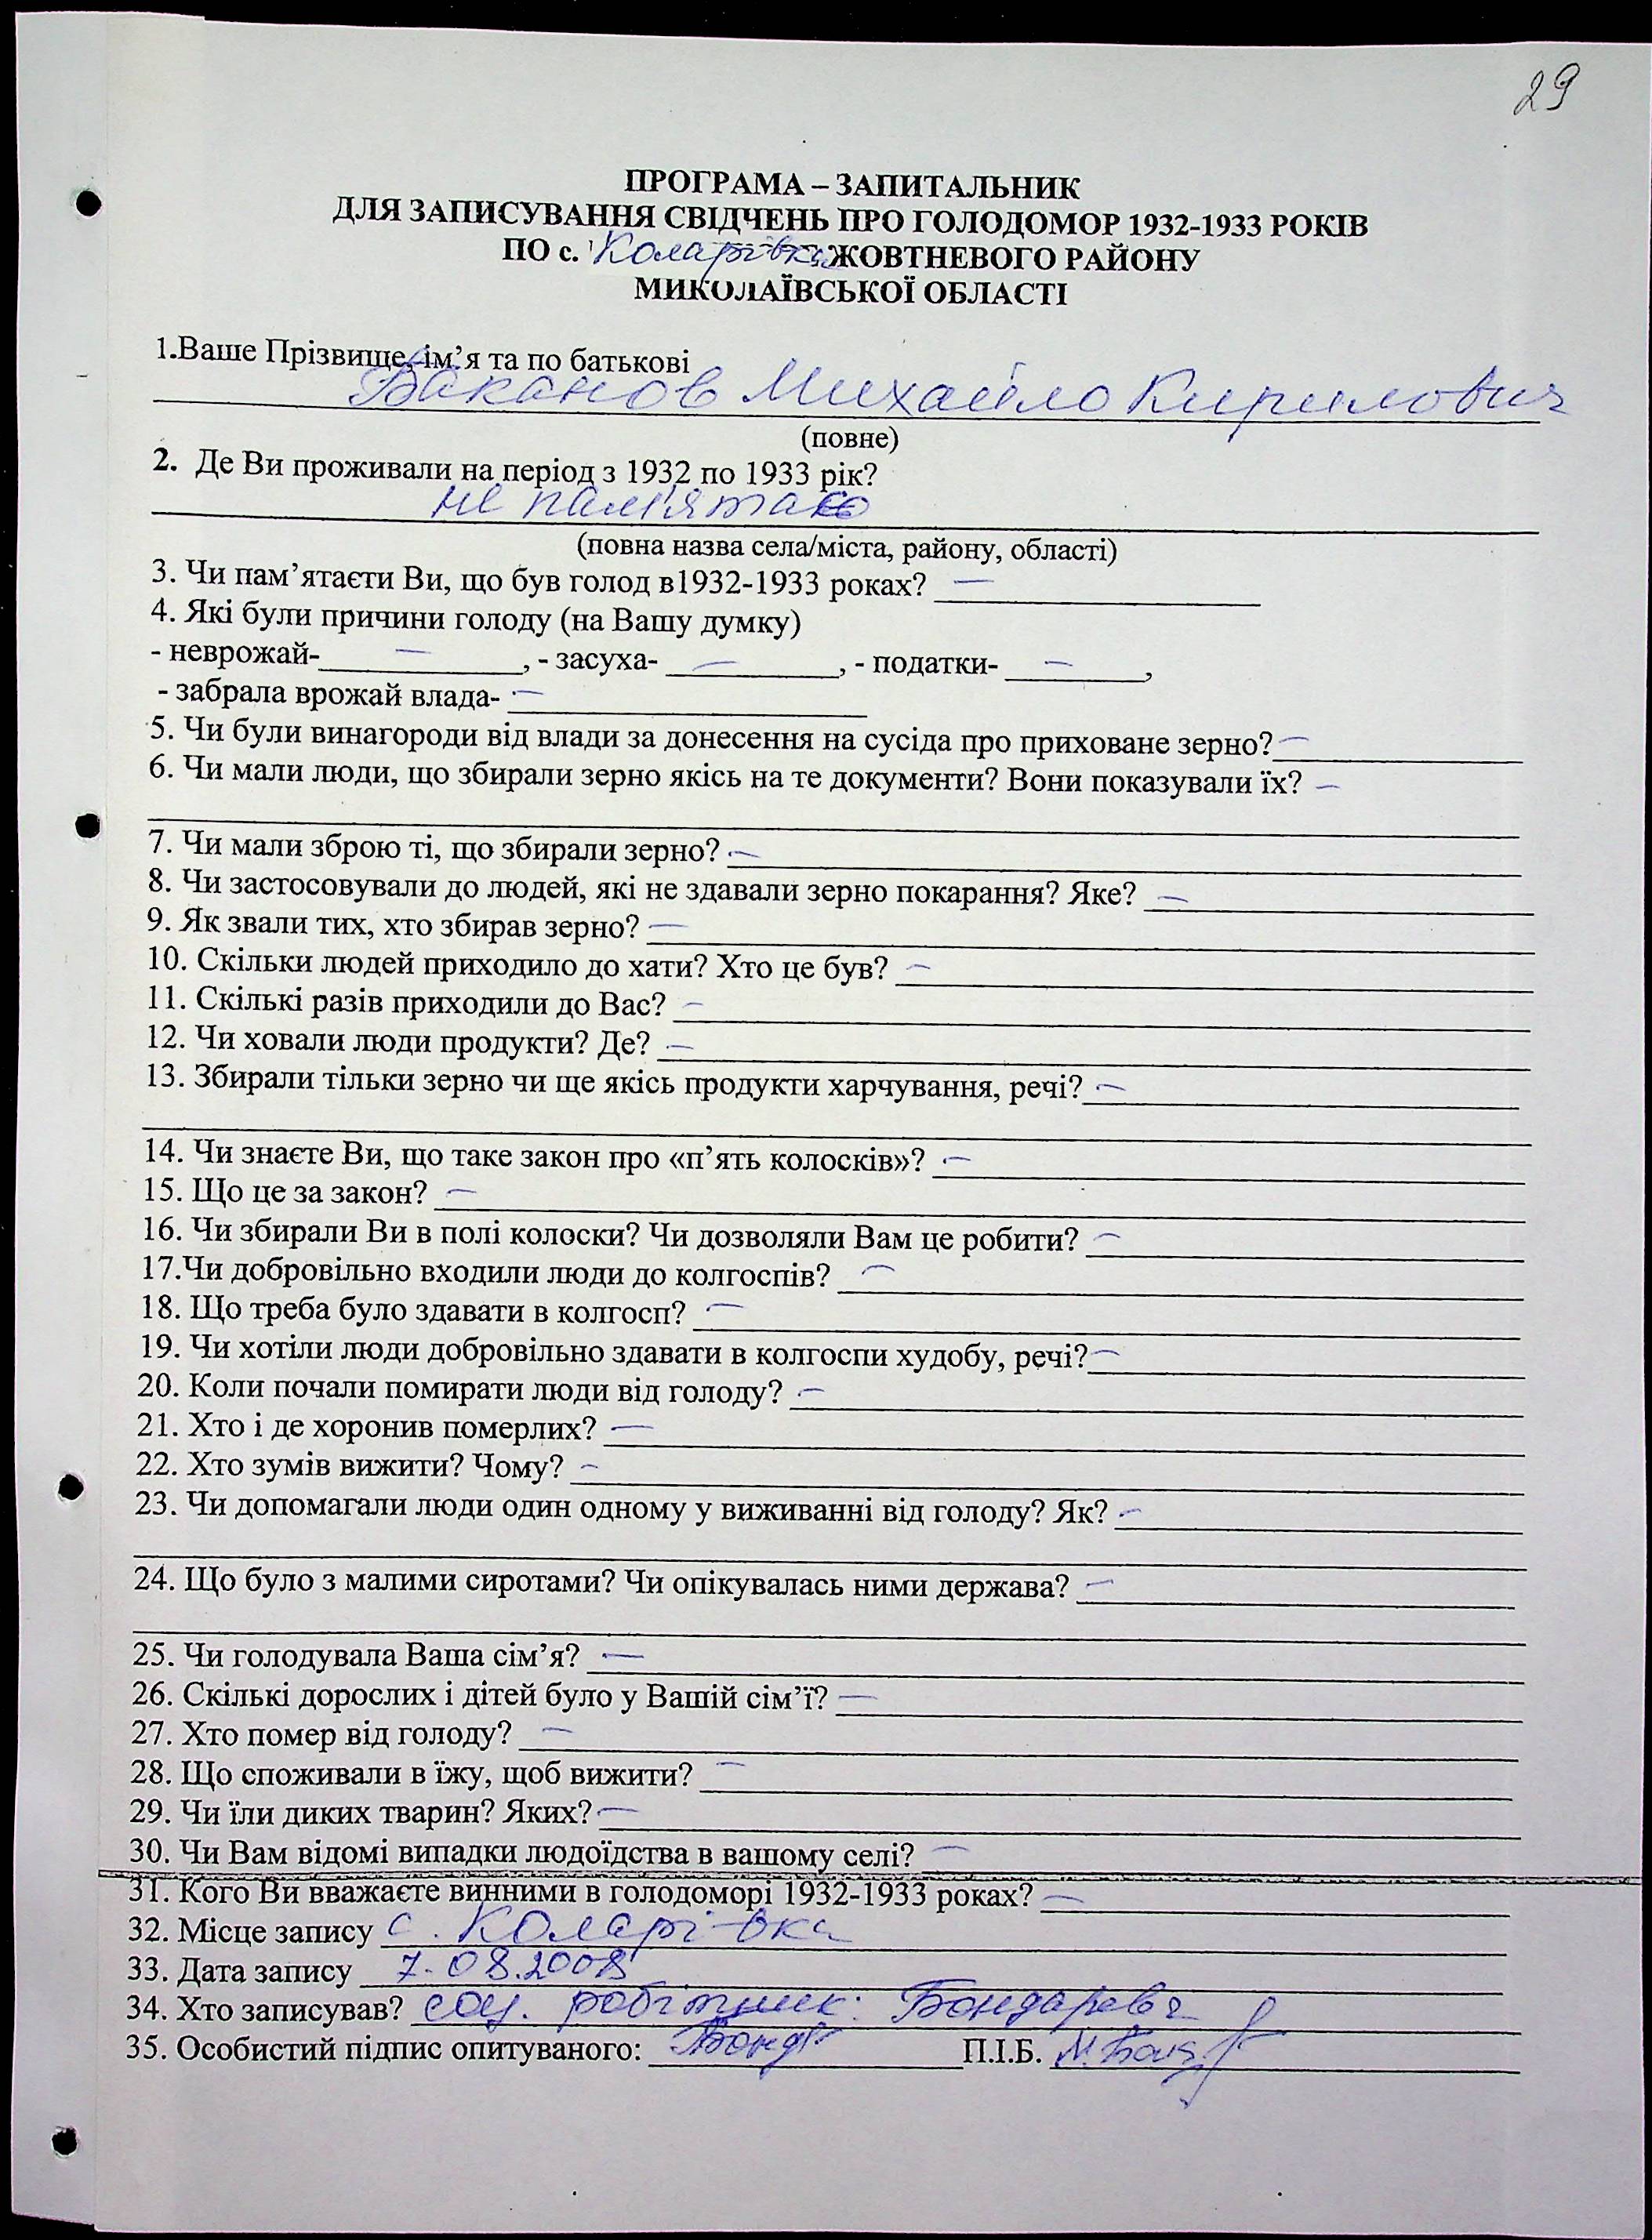 29
ПРОГРАМА – ЗАПИТАЛЬНИК
ДЛЯ ЗАПИСУВАННЯ СВІДЧЕНЬ ПРО ГОЛОДОМОР 1932-1933 РОКІВ
ПО с. Коларівка ЖОВТНЕВОГО РАЙОНУ
МИКОЛАЇВСЬКОЇ ОБЛАСТІ
1.Ваше Прізвище, ім’я та по батькові
Баканов Михайло Кирилович
(повне)
2. Де Ви проживали на період з 1932 по 1933 рік?
не пам'ятаю
(повна назва села/міста, району, області)
3. Чи пам’ятаєти Ви, що був голод в1932-1933 роках? —
4. Які були причини голоду (на Вашу думку)
- неврожай- — , - засуха- — , - податки- — ,
- забрала врожай влада- —
5. Чи були винагороди від влади за донесення на сусіда про приховане зерно? —
6. Чи мали люди, що збирали зерно якісь на те документи? Вони показували їх? —
7. Чи мали зброю ті, що збирали зерно? —
8. Чи застосовували до людей, які не здавали зерно покарання? Яке? —
9. Як звали тих, хто збирав зерно? —
10. Скільки людей приходило до хати? Хто це був? —
11. Скількі разів приходили до Вас? —
12. Чи ховали люди продукти? Де? —
13. Збирали тільки зерно чи ще якісь продукти харчування, речі? —
14. Чи знаєте Ви, що таке закон про «п’ять колосків»? —
15. Що це за закон? —
16. Чи збирали Ви в полі колоски? Чи дозволяли Вам це робити? —
17.Чи добровільно входили люди до колгоспів? —
18. Що треба було здавати в колгосп? —
19. Чи хотіли люди добровільно здавати в колгоспи худобу, речі? —
20. Коли почали помирати люди від голоду? —
21. Хто і де хоронив померлих? —
22. Хто зумів вижити? Чому? —
23. Чи допомагали люди один одному у виживанні від голоду? Як? —
24. Що було з малими сиротами? Чи опікувалась ними держава? —
25. Чи голодувала Ваша сім’я? —
26. Скількі дорослих і дітей було у Вашій сім’ї? —
27. Хто помер від голоду? —
28. Що споживали в їжу, щоб вижити? —
29. Чи їли диких тварин? Яких? —
30. Чи Вам відомі випадки людоїдства в вашому селі? —
31. Кого Ви вважаєте винними в голодоморі 1932-1933 роках? —
32. Місце запису с. Коларівка
33. Дата запису 7.08.2008
34. Хто записував? соц. робітник: Бондаревч
35. Особистий підпис опитуваного: П.І.Б.